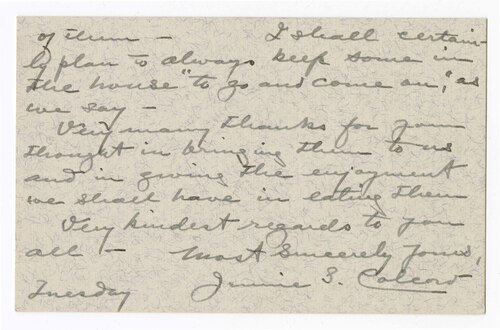 of them — I shall certain-
ly plan to always keep some in
the house "to go and come on," as
we say —
Very many thanks for your
thought in bringing them to us
and in giving the enjoyment
we shall have in eating them
Very kindest regards to you
all — Most Sincerely Yours,
Tuesday Jennie S. Colcord